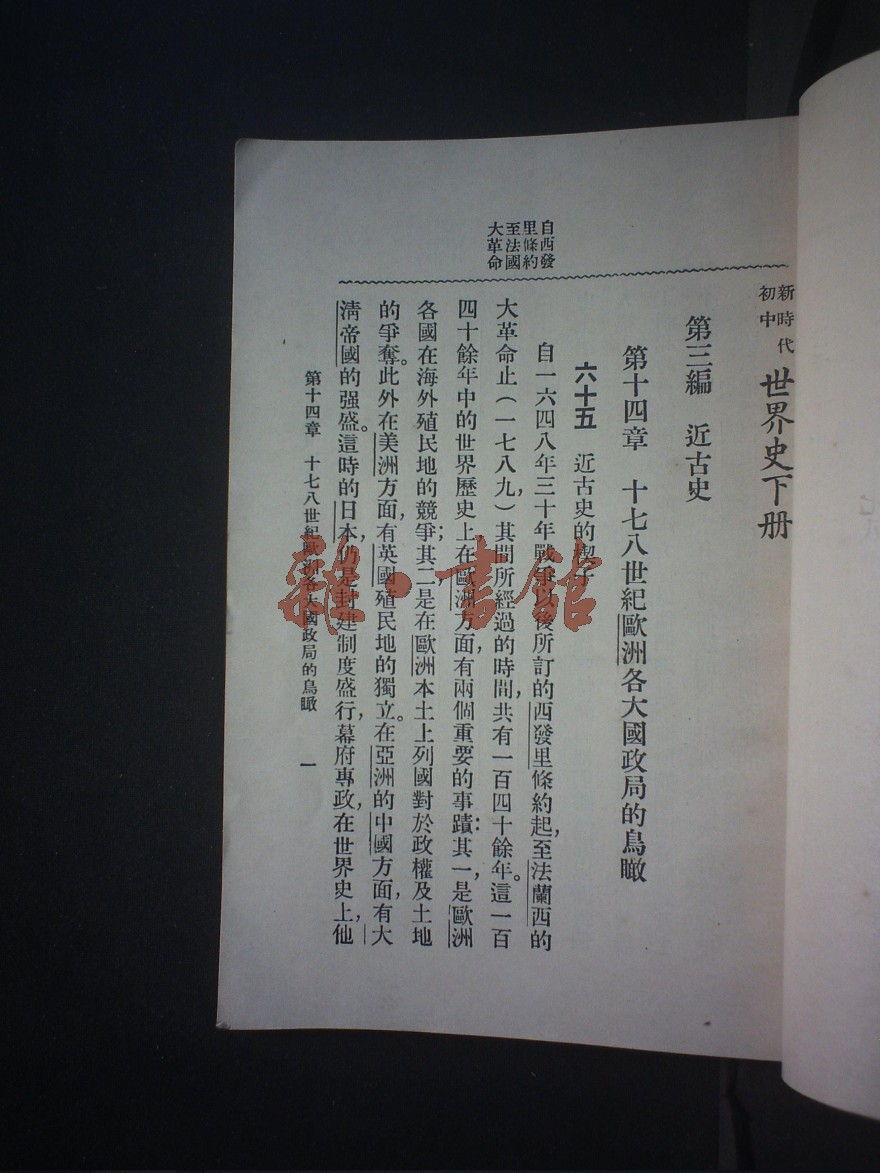 新時代
初中
世界史下册
第三編　近古史
第十四章　十七八世紀歐洲各大國政局的鳥瞰
自西發
里條約
至法國
大革命
六十五　近古史的楔子
自一六四八年三十年戰爭以後所訂的西發里條約起，至法蘭西的
大革命止（一七八九，）其間所經過的時間，共有一百四十餘年。這一百
四十餘年中的世界歷史上在歐洲方面，有兩個重要的事蹟：其一，是歐洲
各國在海外殖民地的競爭；其二是在歐洲本土上列國對於政權及土地
的爭奪。此外在美洲方面，有英國殖民地的獨立。在亞洲的中國方面，有大
淸帝國的强盛。這時的日本，仍是封建制度盛行，幕府專政，在世界史上，他
第十四章　十七八世紀歐洲各大國政局的鳥瞰
一
雜·書館